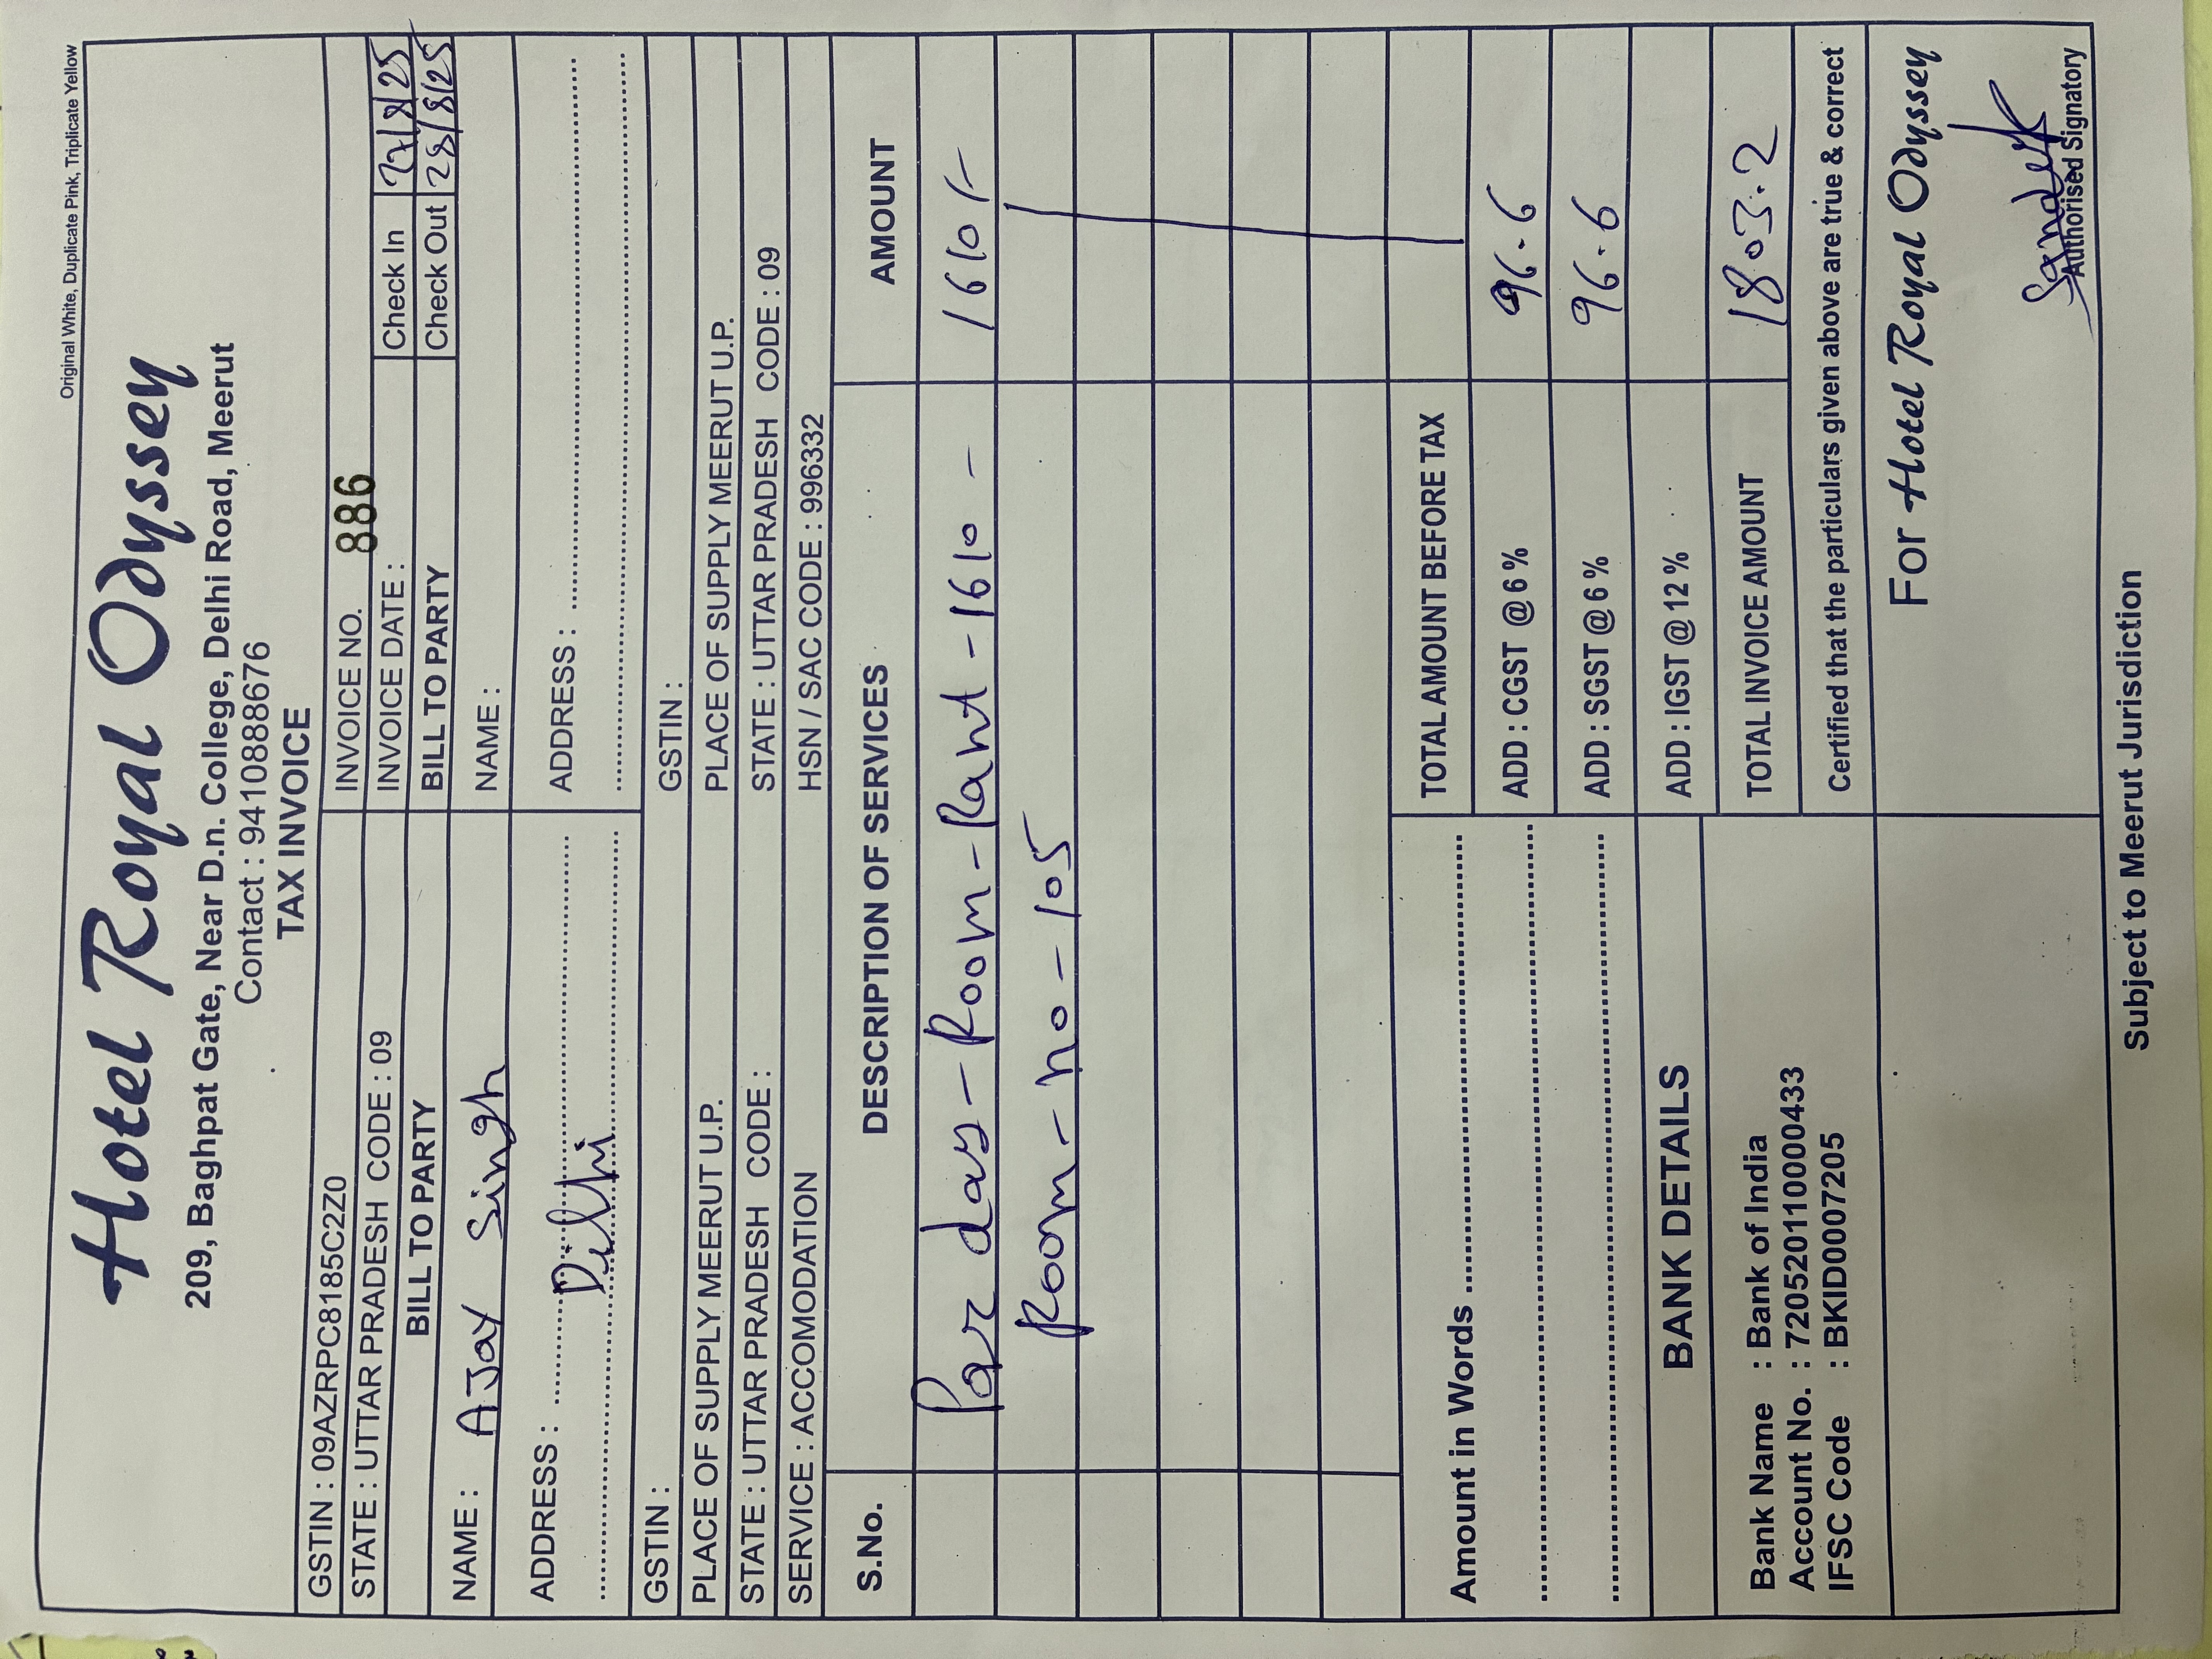 Original White, Duplicate Pink, Triplicate Yellow
Hotel Royal Odyssey
209, Baghpat Gate, Near D.n. College, Delhi Road, Meerut
Contact : 9410888676
TAX INVOICE
GSTIN : 09AZRPC8185C2Z0
INVOICE NO. 886
STATE : UTTAR PRADESH CODE : 09
INVOICE DATE :
Check In 27/8/25
BILL TO PARTY
BILL TO PARTY
Check Out 28/8/25
NAME : AJay Singh
NAME :
ADDRESS : Dilhi
ADDRESS :
GSTIN :
GSTIN :
PLACE OF SUPPLY MEERUT U.P.
PLACE OF SUPPLY MEERUT U.P.
STATE : UTTAR PRADESH CODE :
STATE : UTTAR PRADESH CODE : 09
SERVICE : ACCOMODATION
HSN / SAC CODE : 996332
S.No. DESCRIPTION OF SERVICES AMOUNT
Par day - Room - Rant - 1610 - 1610/-
Room - no - 105
Amount in Words
TOTAL AMOUNT BEFORE TAX
ADD : CGST @ 6 % 96.6
ADD : SGST @ 6 % 96.6
BANK DETAILS
ADD : IGST @ 12 %
Bank Name : Bank of India
Account No. : 720520110000433
IFSC Code : BKID0007205
TOTAL INVOICE AMOUNT 1803.2
Certified that the particulars given above are true & correct
For Hotel Royal Odyssey
Authorised Signatory
Subject to Meerut Jurisdiction